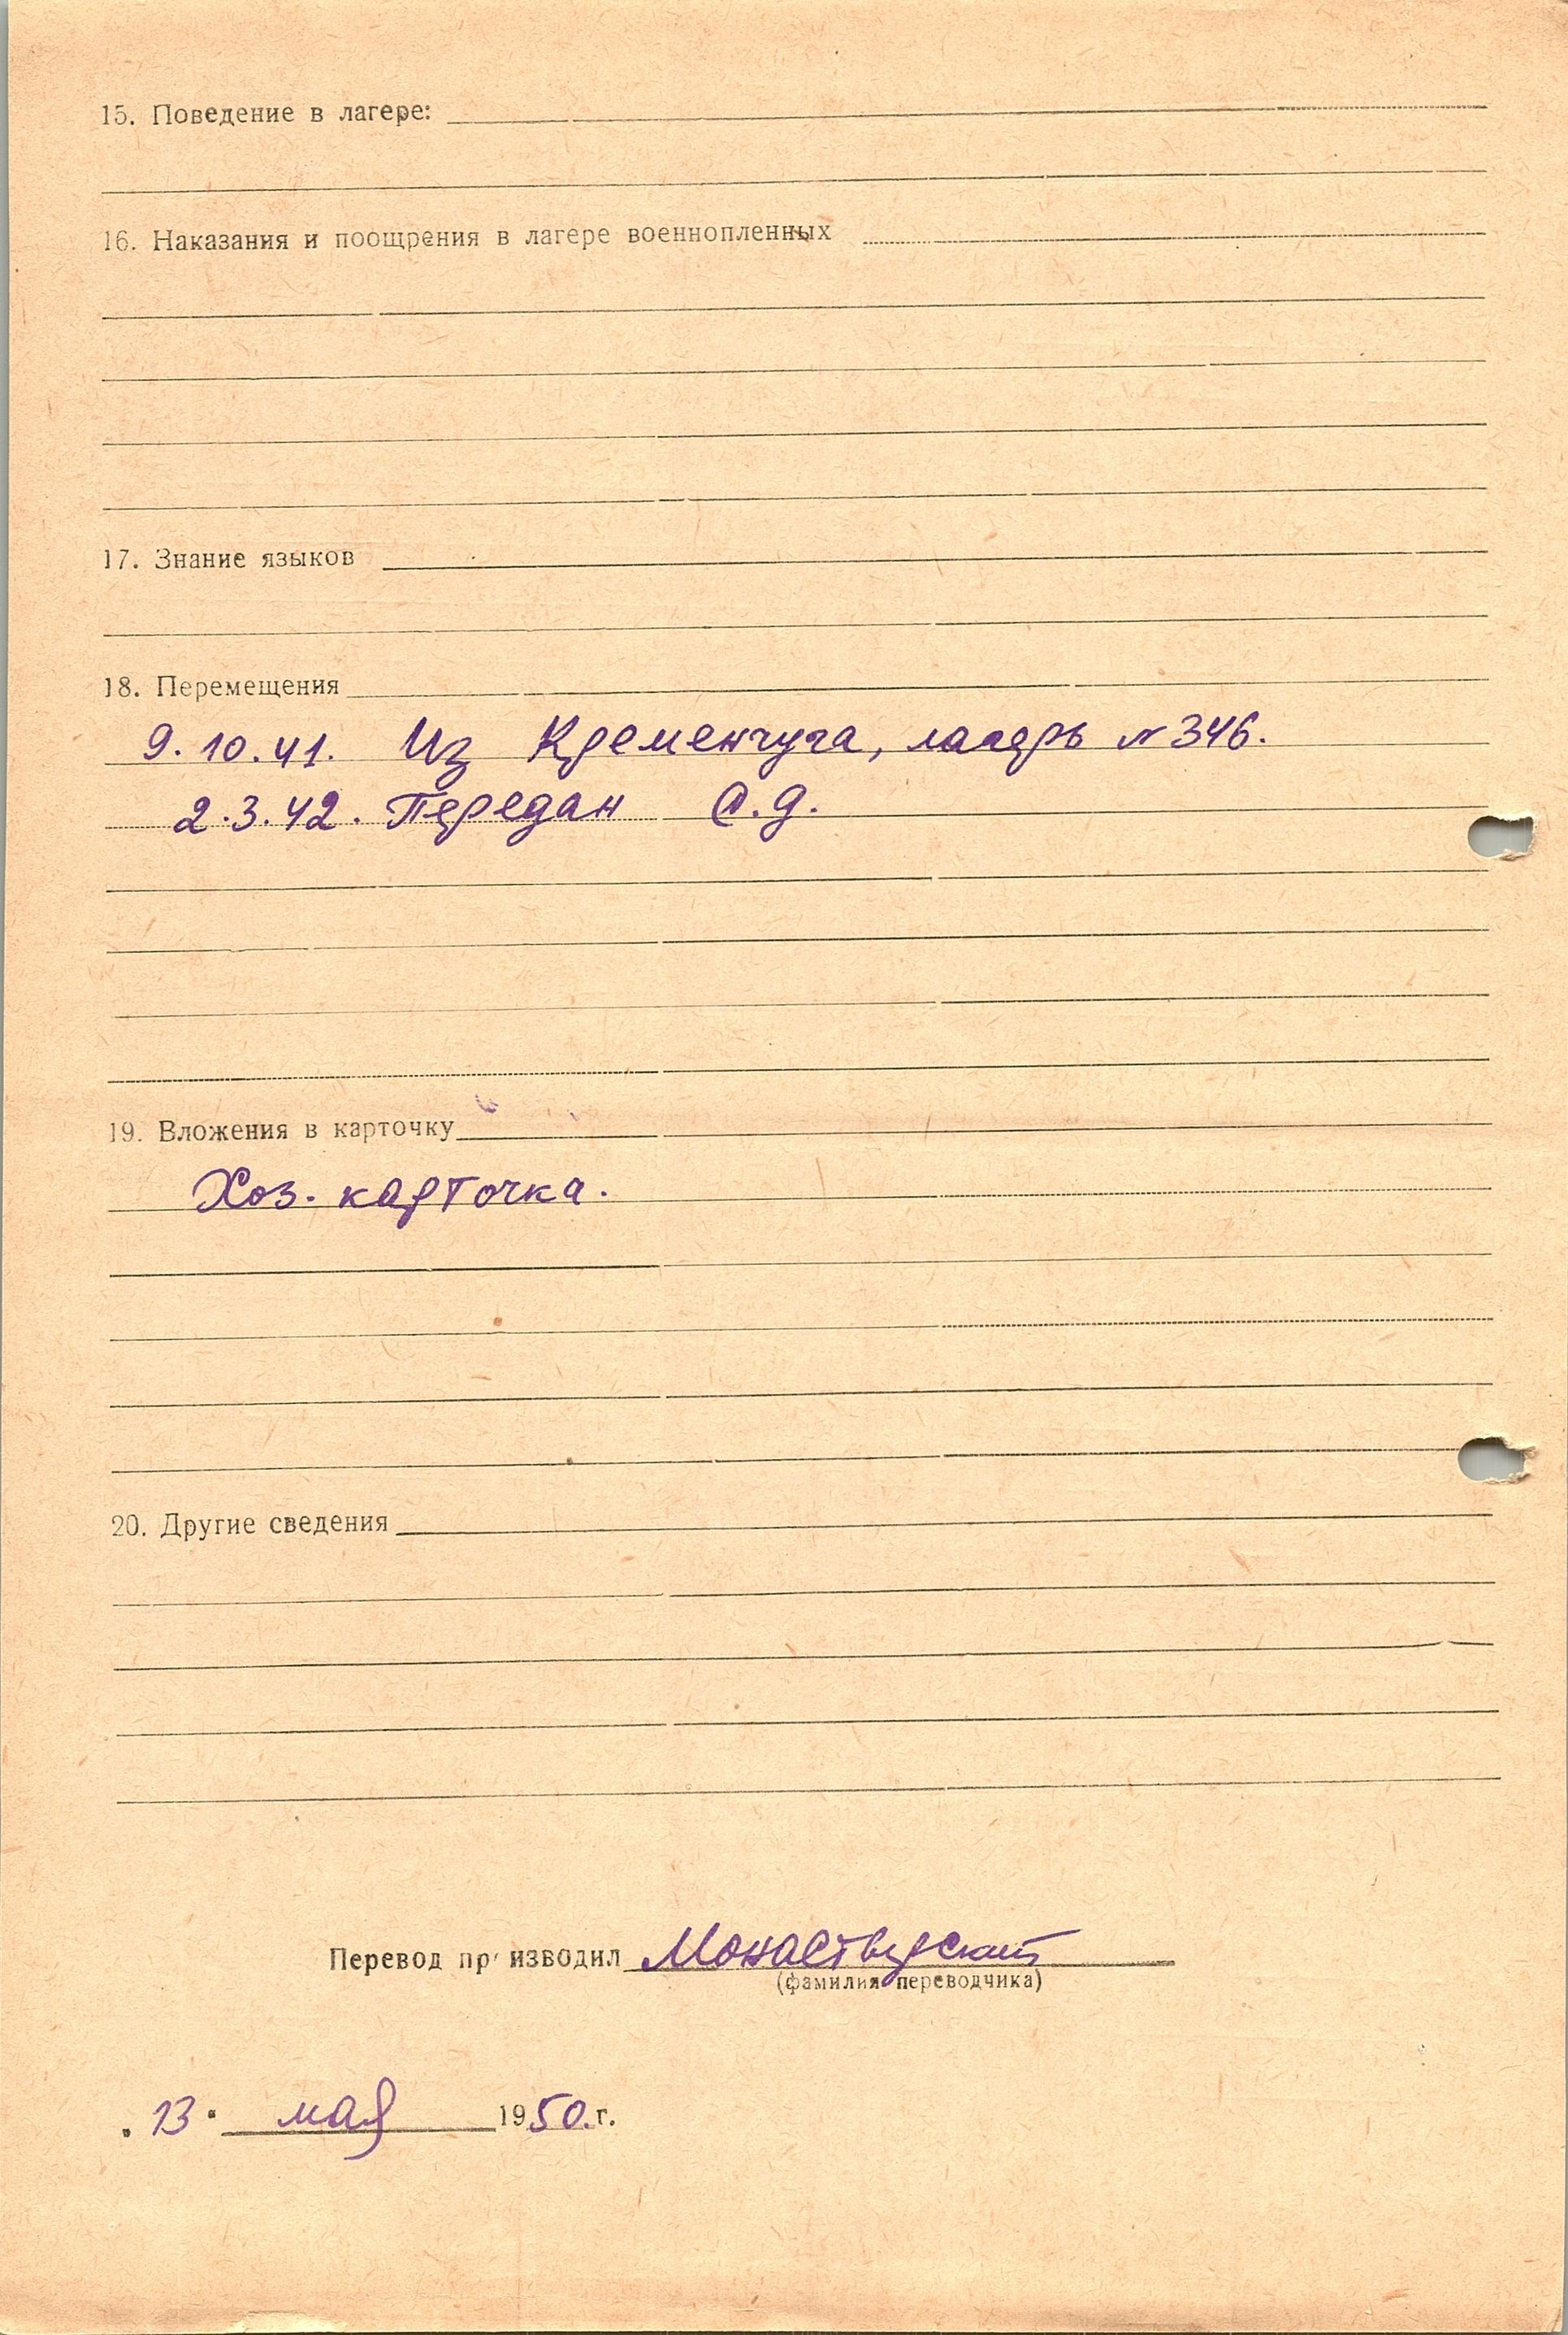 15. Поведение в лагере:
16. Наказания и поощрения в лагере военнопленных
17. Знание языков
18. Перемещения
9.10.41. Из Кременчуга, лагерь № 346.
2.3.42. Передан С.Д.
19. Вложения в карточку
Хоз. карточка.
20. Другие сведения
Перевод производил Монастырский
(фамилия переводчика)
"13" мая 1950 г.